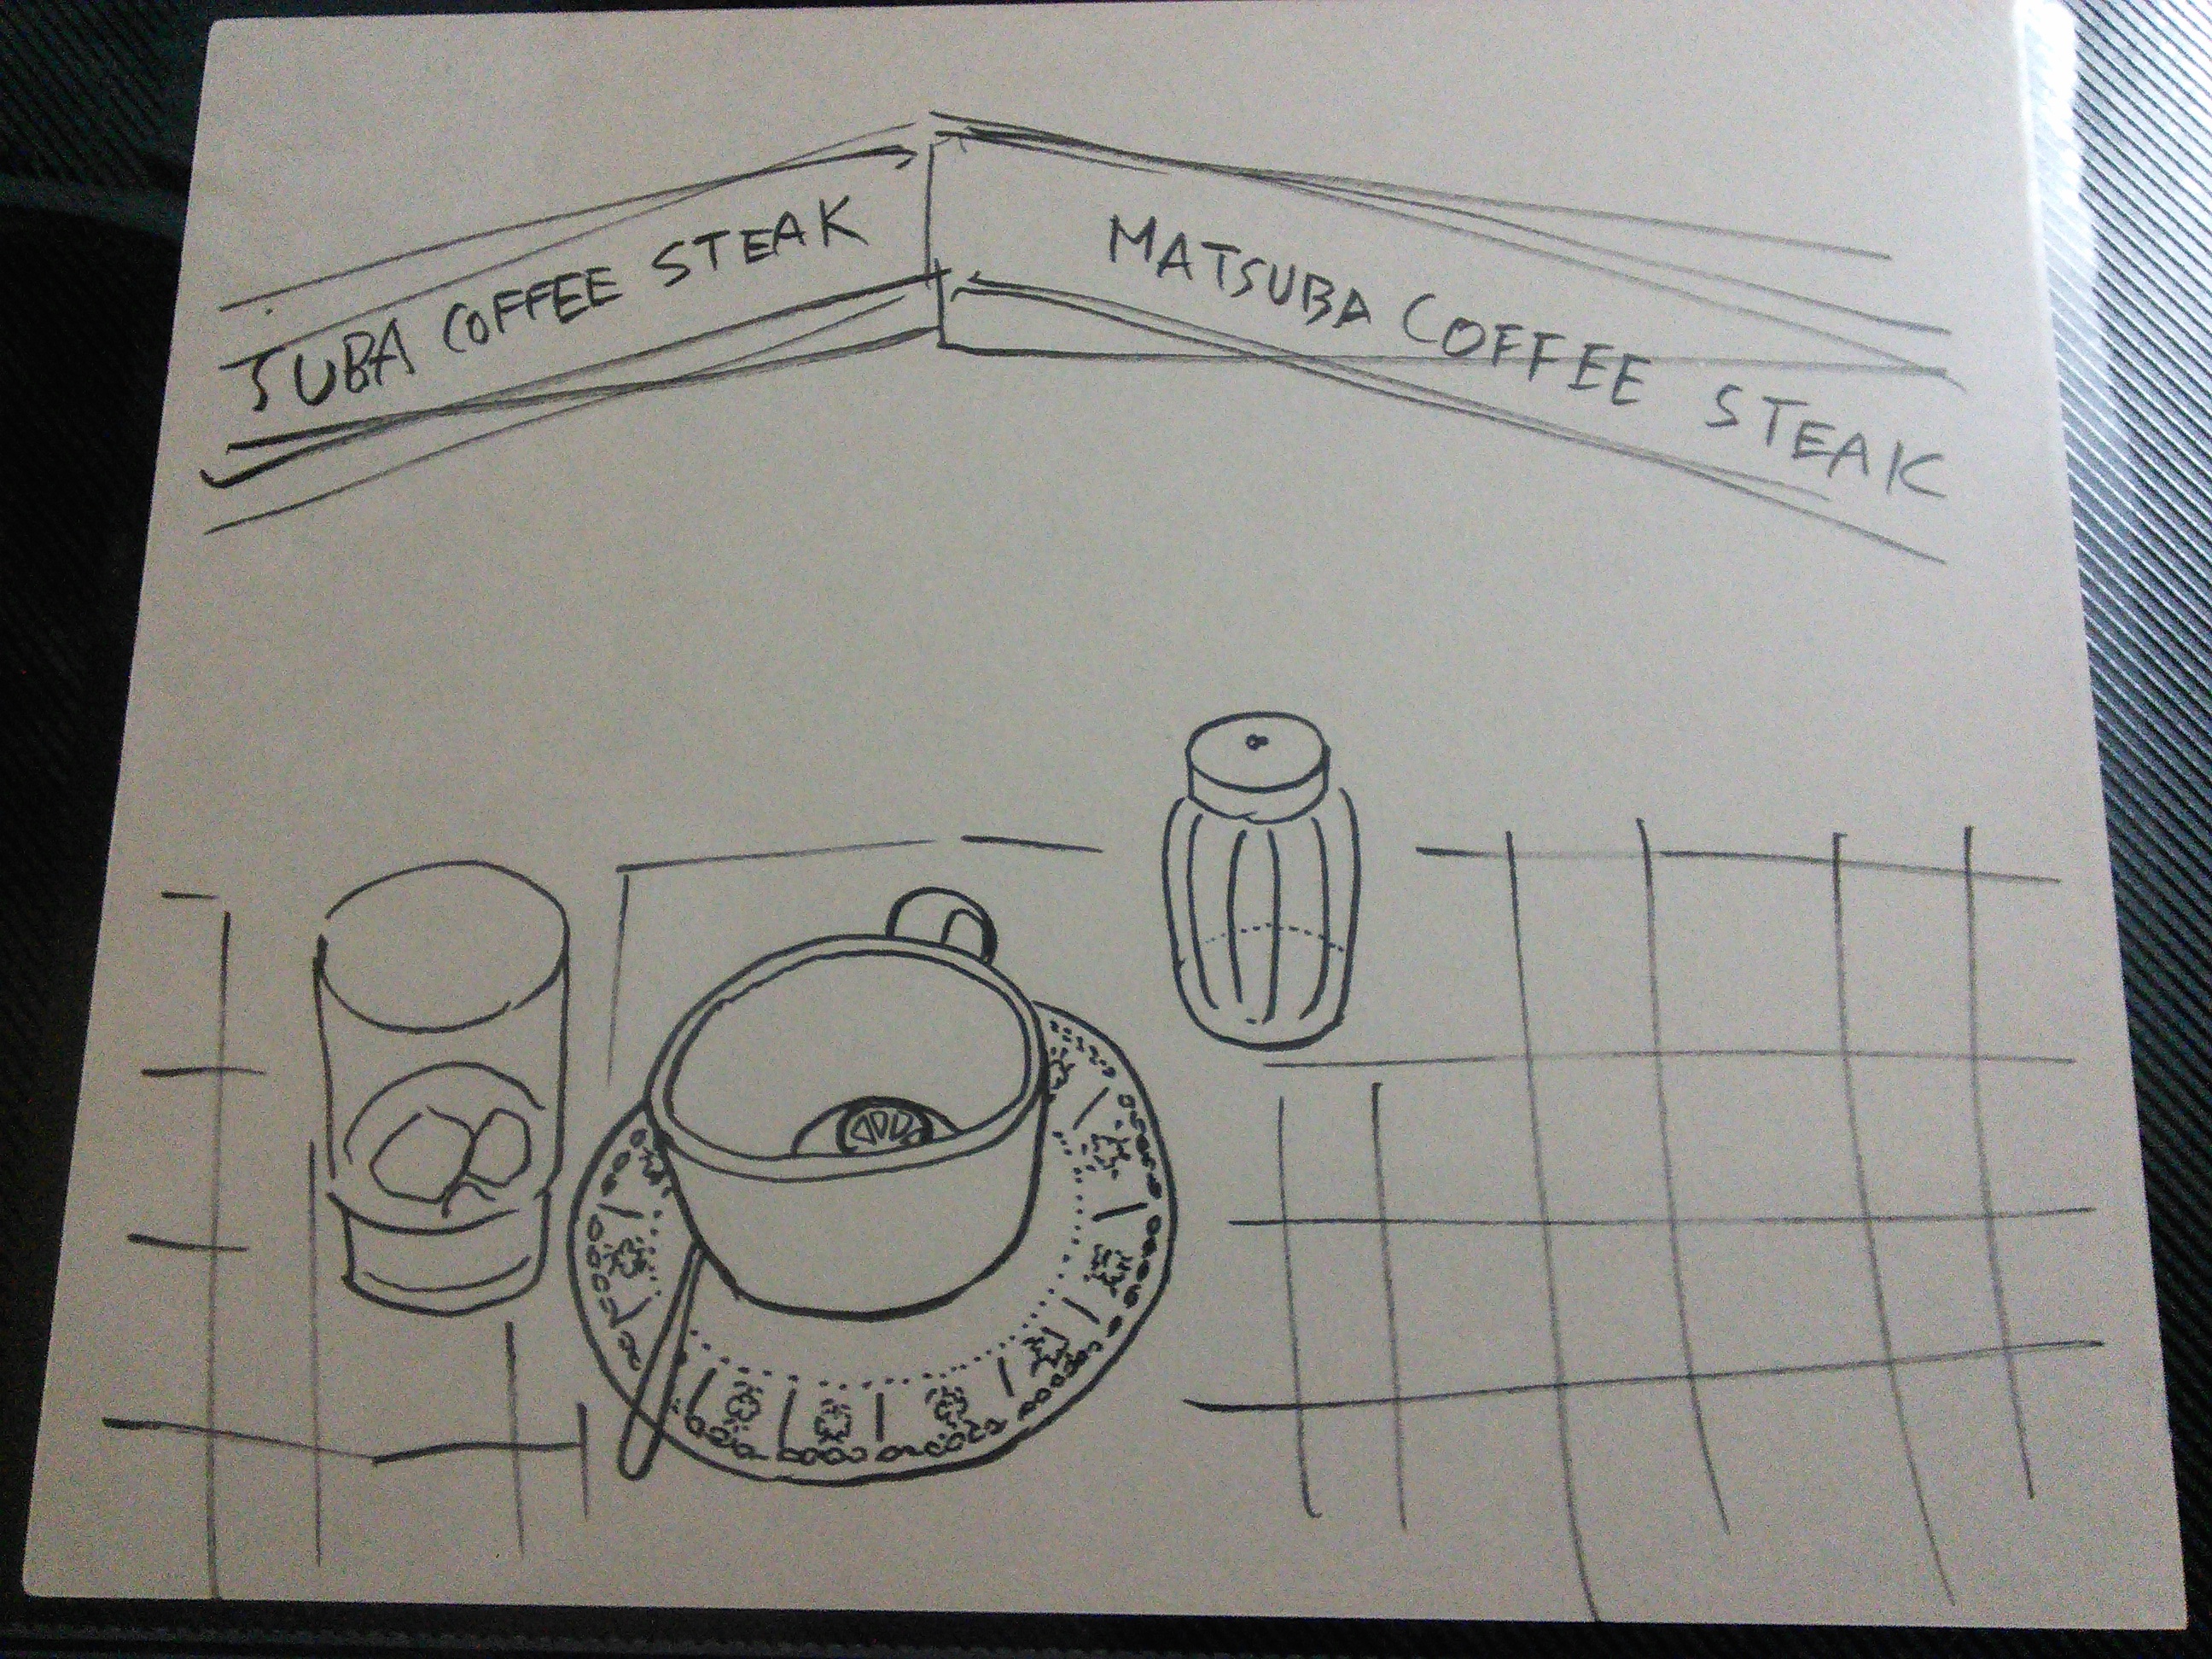 SUBA COFFEE STEAK
MATSUBA COFFEE STEAK